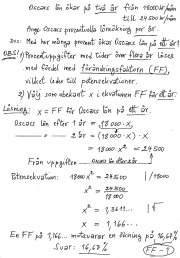 Oscars lön ökar på två år från 18000 kr/mån
till 24500 kr/mån
Ange Oscars procentuella löneökning per år.
Dvs: Med hur många procent ökar Oscars lön på ett år?
OBS! 1) Procentuppgifter med tider över flera år löses
med fördel med förändringsfaktorn (FF)
vilket leder till potensekvationer.
2) Välj som obekant x i ekvationen FF för ett år.
Lösning: x = FF för Oscars lön på ett år
Oscars lön efter 1 år = 18000·x
2 år = (18000·x)·x
= 18000x² = 24500
Från uppgiften
Oscars lön efter 2 år
Potensekvation: 18000x² = 24500
x² = 24500/18000
x² = 1,3611... | √
x = 1,166...
En FF på 1,166... motsvarar en ökning på 16,67%
Svar: 16,67%
FF - 1